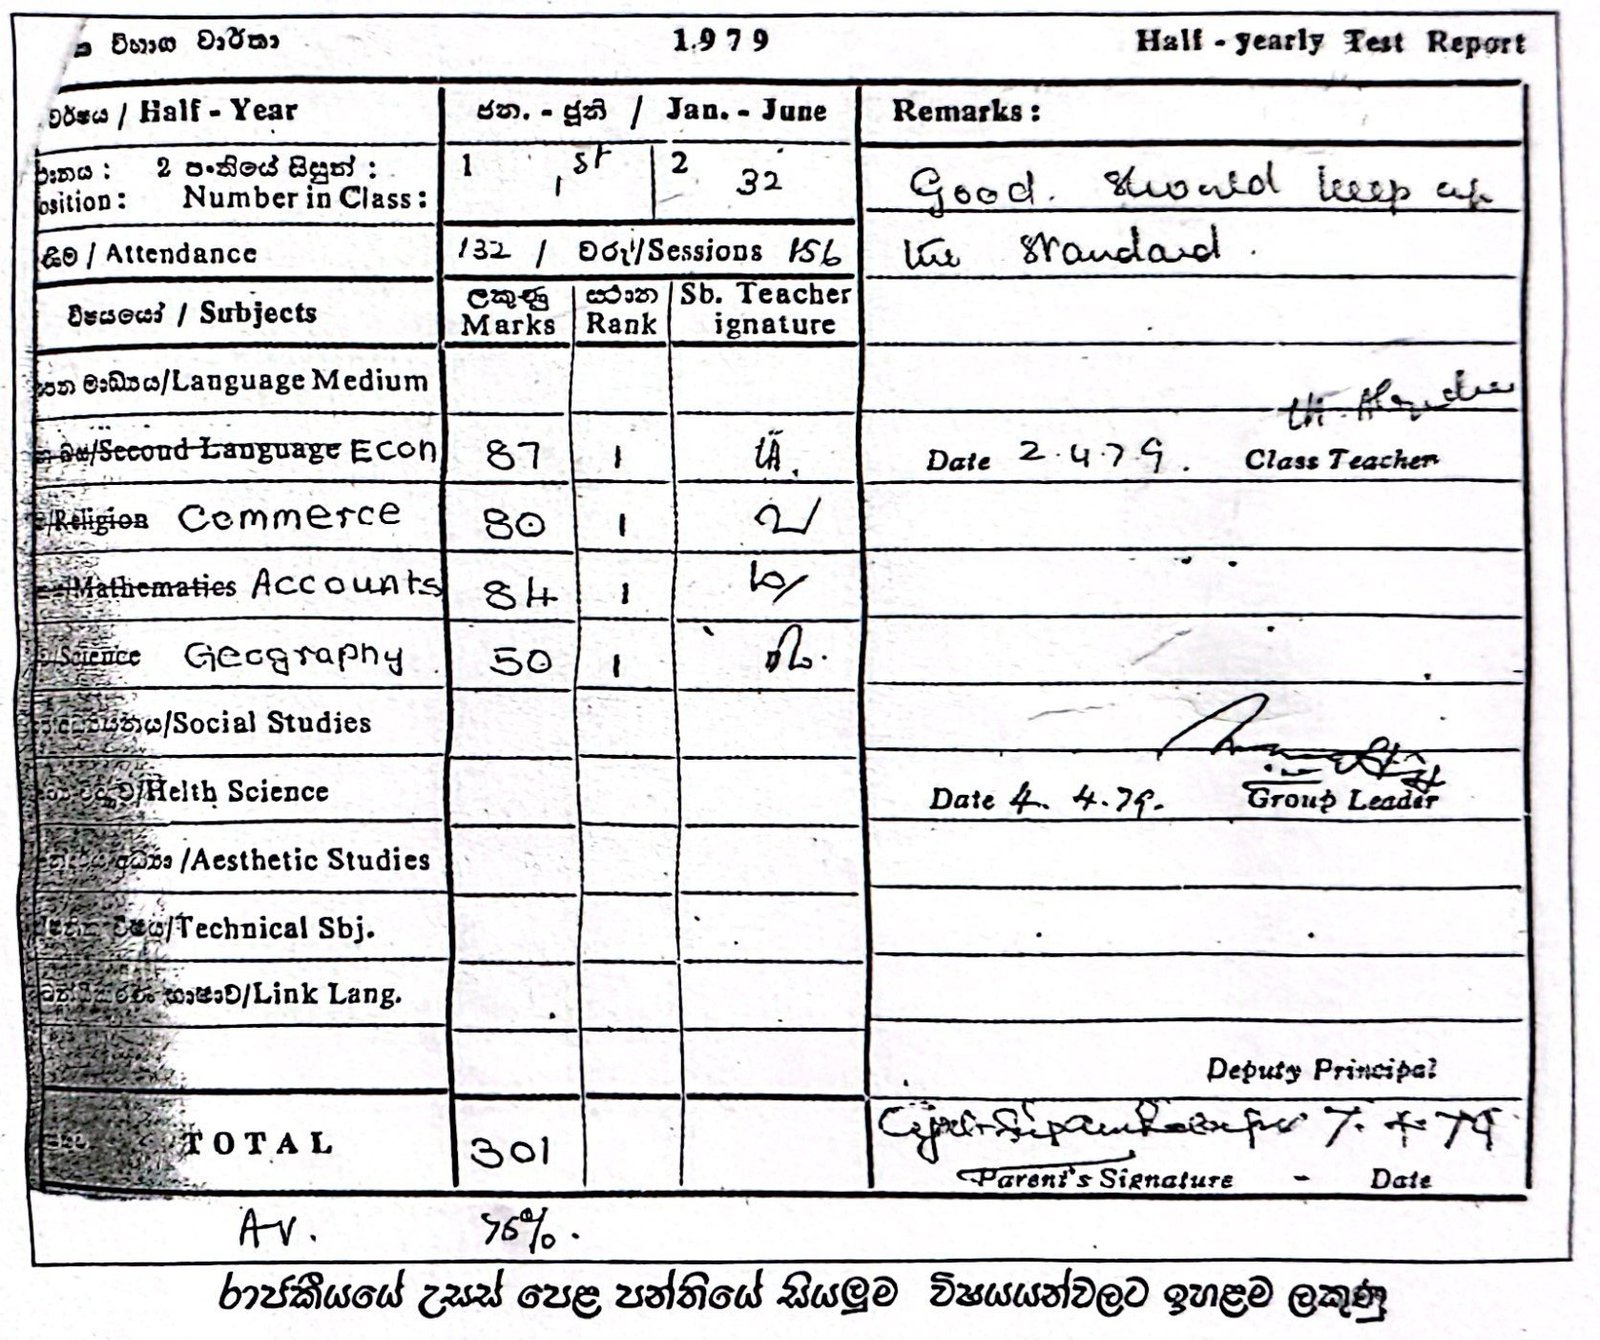 විභාග වාර්තා 1979 Half - yearly Test Report
වර්ෂය / Half - Year ජන. - ජූනි / Jan. - June Remarks :
2 පංතියේ සිසුන් : 1 1st 2 32
osition : Number in Class :
Good. Should keep up
the standard.
/ Attendance 132 / වරු/Sessions 156
විෂයයෝ / Subjects ලකුණු Marks ස්ථාන Rank Sb. Teacher ignature
මාධ්‍යය/Language Medium
/Second Language Econ 87 1
Date 2.4.79. Class Teacher
/Religion Commerce 80 1
/Mathematics Accounts 84 1
/Science Geography 50 1
/Social Studies
/Helth Science
Date 4. 4.79. Group Leader
/Aesthetic Studies
/Technical Sbj.
භාෂාව/Link Lang.
Deputy Principal
TOTAL 301
7. 4. 79
Parent's Signature - Date
Av. 75%.
රාජකීයයේ උසස් පෙළ පන්තියේ සියලුම විෂයයන්වලට ඉහළම ලකුණු